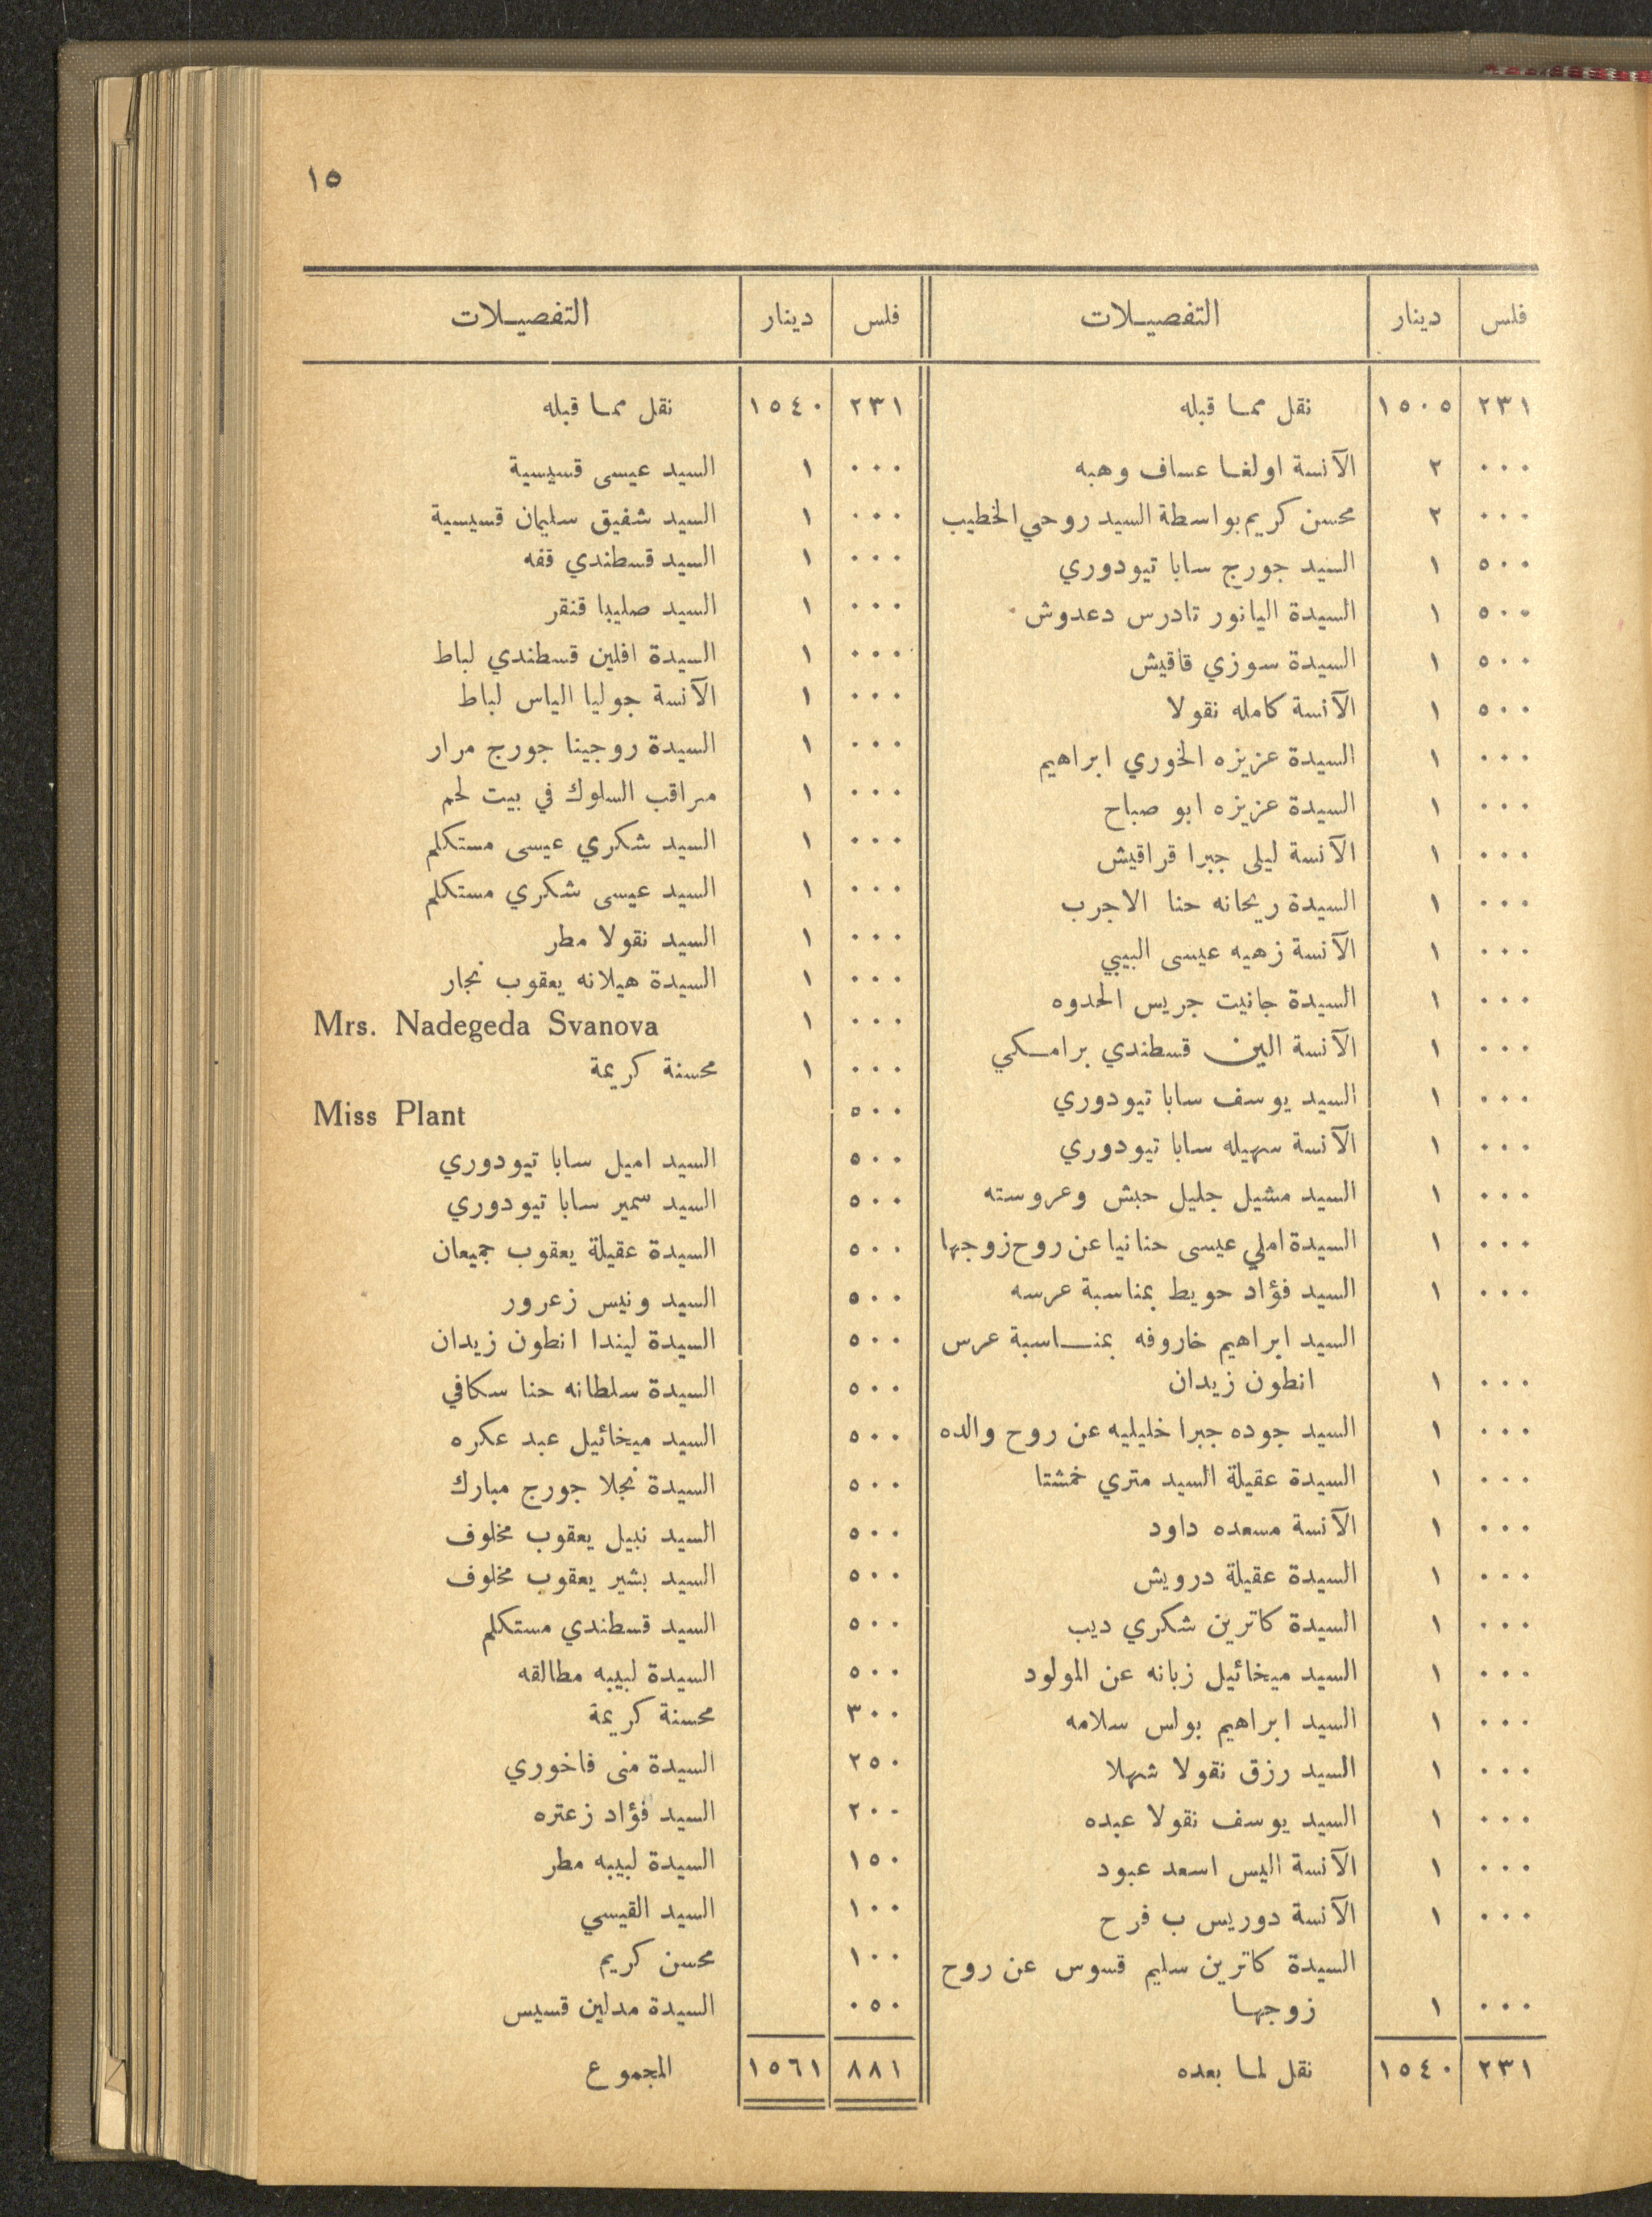 ١٥
فلس دينار التفصيلات
٢٣١ ١٥٠٥ نقل مما قبله
٠٠٠ ٢ الآنسة اولغا عساف وهبه
٠٠٠ ٢ محسن كريم بواسطة السيد روحي الخطيب
٥٠٠ ١ السيد جورج سابا تيودوري
٥٠٠ ١ السيدة اليانور تادرس دعدوش
٥٠٠ ١ السيدة سوزي قاقيش
٥٠٠ ١ الآنسة كامله نقولا
٠٠٠ ١ السيدة عزيزه الخوري ابراهيم
٠٠٠ ١ السيدة عزيزه ابو صباح
٠٠٠ ١ الآنسة ليلى جبرا قراقيش
٠٠٠ ١ السيدة ريحانه حنا الاجرب
٠٠٠ ١ الآنسة زهيه عيسى البيبي
٠٠٠ ١ السيدة جانيت جريس الحدوه
٠٠٠ ١ الآنسة الين قسطندي برامكي
٠٠٠ ١ السيد يوسف سابا تيودوري
٠٠٠ ١ الآنسة سهيله سابا تيودوري
٠٠٠ ١ السيد مشيل جليل حبش وعروسته
٠٠٠ ١ السيدة املي عيسى حنانيا عن روح زوجها
٠٠٠ ١ السيد فؤاد حويط بمناسبة عرسه
السيد ابراهيم خاروفه بمناسبة عرس
٠٠٠ ١ انطون زيدان
٠٠٠ ١ السيد جوده جبرا خليليه عن روح والده
٠٠٠ ١ السيدة عقيلة السيد متري خمشتا
٠٠٠ ١ الآنسة مسعده داود
٠٠٠ ١ السيدة عقيلة درويش
٠٠٠ ١ السيدة كاترين شكري ديب
٠٠٠ ١ السيد ميخائيل زبانه عن المولود
٠٠٠ ١ السيد ابراهيم بولس سلامه
٠٠٠ ١ السيد رزق نقولا شهلا
٠٠٠ ١ السيد يوسف نقولا عبده
٠٠٠ ١ الآنسة اليس اسعد عبود
٠٠٠ ١ الآنسة دوريس ب فرح
السيدة كاترين سليم قسوس عن روح
٠٠٠ ١ زوجها
٢٣١ ١٥٤٠ نقل لما بعده
فلس دينار التفصيلات
٢٣١ ١٥٤٠ نقل مما قبله
٠٠٠ ١ السيد عيسى قسيسية
٠٠٠ ١ السيد شفيق سليمان قسيسية
٠٠٠ ١ السيد قسطندي قفه
٠٠٠ ١ السيد صليبا قنقر
٠٠٠ ١ السيدة افلين قسطندي لباط
٠٠٠ ١ الآنسة جوليا الياس لباط
٠٠٠ ١ السيدة روجينا جورج مرار
٠٠٠ ١ مراقب السلوك في بيت لحم
٠٠٠ ١ السيد شكري عيسى مستكلم
٠٠٠ ١ السيد عيسى شكري مستكلم
٠٠٠ ١ السيد نقولا مطر
٠٠٠ ١ السيدة هيلانه يعقوب نجار
٠٠٠ ١ Mrs. Nadegeda Svanova
٠٠٠ ١ محسنة كريمة
٥٠٠ Miss Plant
٥٠٠ السيد اميل سابا تيودوري
٥٠٠ السيد سمير سابا تيودوري
٥٠٠ السيدة عقيلة يعقوب جميعان
٥٠٠ السيد ونيس زعرور
٥٠٠ السيدة ليندا انطون زيدان
٥٠٠ السيدة سلطانه حنا سكافي
٥٠٠ السيد ميخائيل عبد عكره
٥٠٠ السيدة نجلا جورج مبارك
٥٠٠ السيد نبيل يعقوب مخلوف
٥٠٠ السيد بشير يعقوب مخلوف
٥٠٠ السيد قسطندي مستكلم
٥٠٠ السيدة لبيبه مطالقه
٣٠٠ محسنة كريمة
٢٥٠ السيدة منى فاخوري
٢٠٠ السيد فؤاد زعتره
١٥٠ السيدة لبيبه مطر
١٠٠ السيد القيسي
١٠٠ محسن كريم
٠٥٠ السيدة مدلين قسيس
٨٨١ ١٥٦١ المجموع